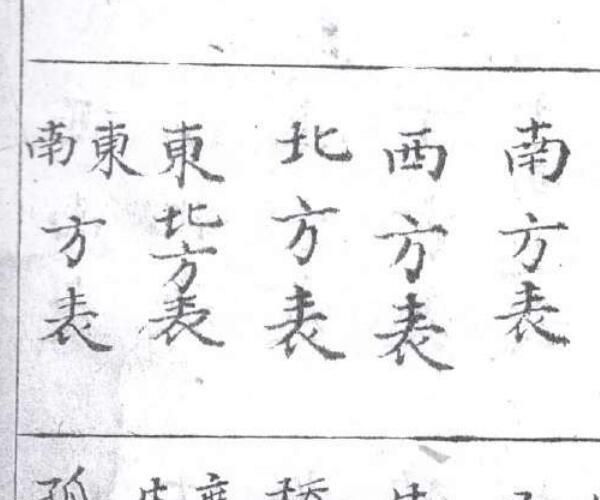 南方表
西方表
北方表
東北方表
東南方表